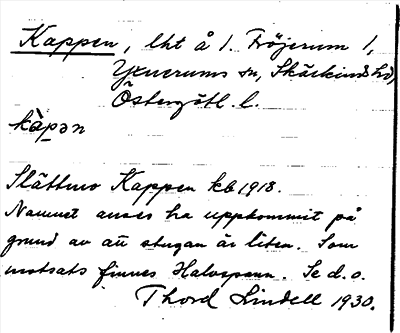 Kappen, lht å 1. Fröjerum 1,
Yxnerums sn, Skärkinds hd,
Östergötl. l.
kàpən
Slåttmo Kappen kb 1918.
Namnet anses ha uppkommit på
grund av att stugan är liten. Som
motsats finnes Halvspann. Se d. o.
Thord Lindell 1930.